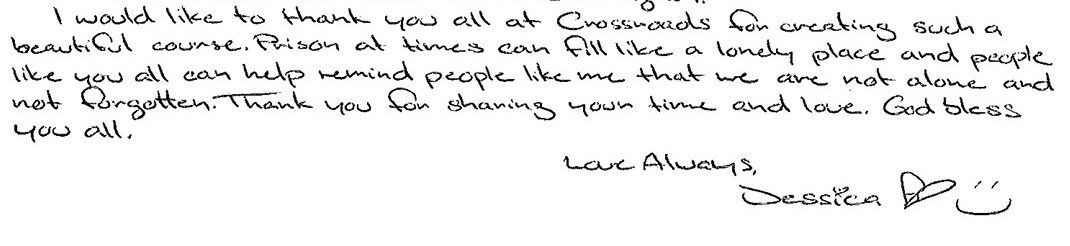 I would like to thank you all at Crossroads for creating such a
beautiful course. Prison at times can fill like a lonely place and people
like you all can help remind people like me that we are not alone and
not forgotten. Thank you for sharing your time and love. God bless
you all.
Love Always,
Jessica